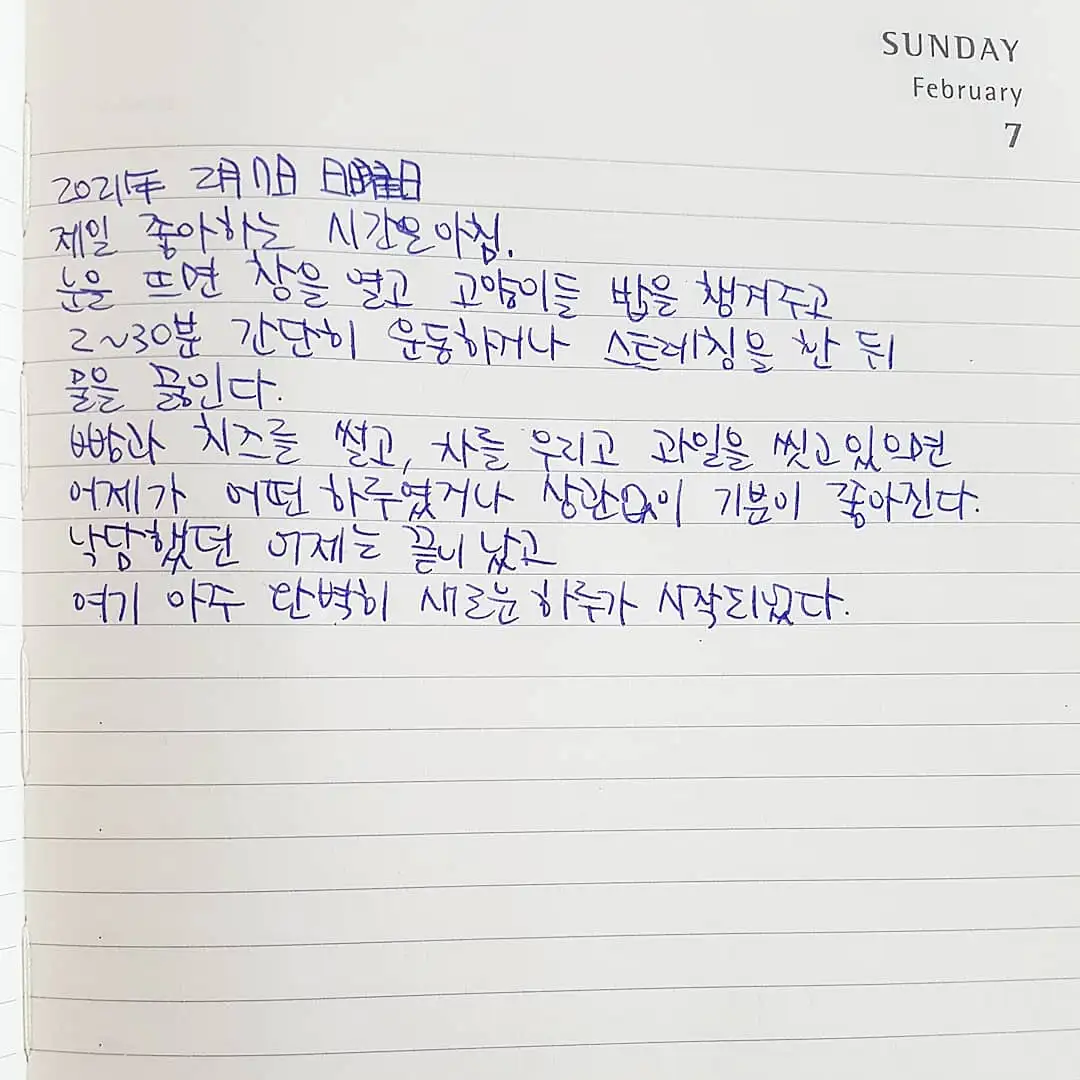 SUNDAY
February
7
2021年 2月 7日 日曜日
제일 좋아하는 시간은 아침.
눈을 뜨면 창을 열고 고양이들 밥을 챙겨주고
2~30분 간단히 운동하거나 스트레칭을 한 뒤
물을 끓인다.
빵과 치즈를 썰고, 차를 우리고 과일을 씻고 있으면
어제가 어떤 하루였거나 상관없이 기분이 좋아진다.
낙담했던 어제는 끝이 났고
여기 아주 완벽히 새로운 하루가 시작되었다.